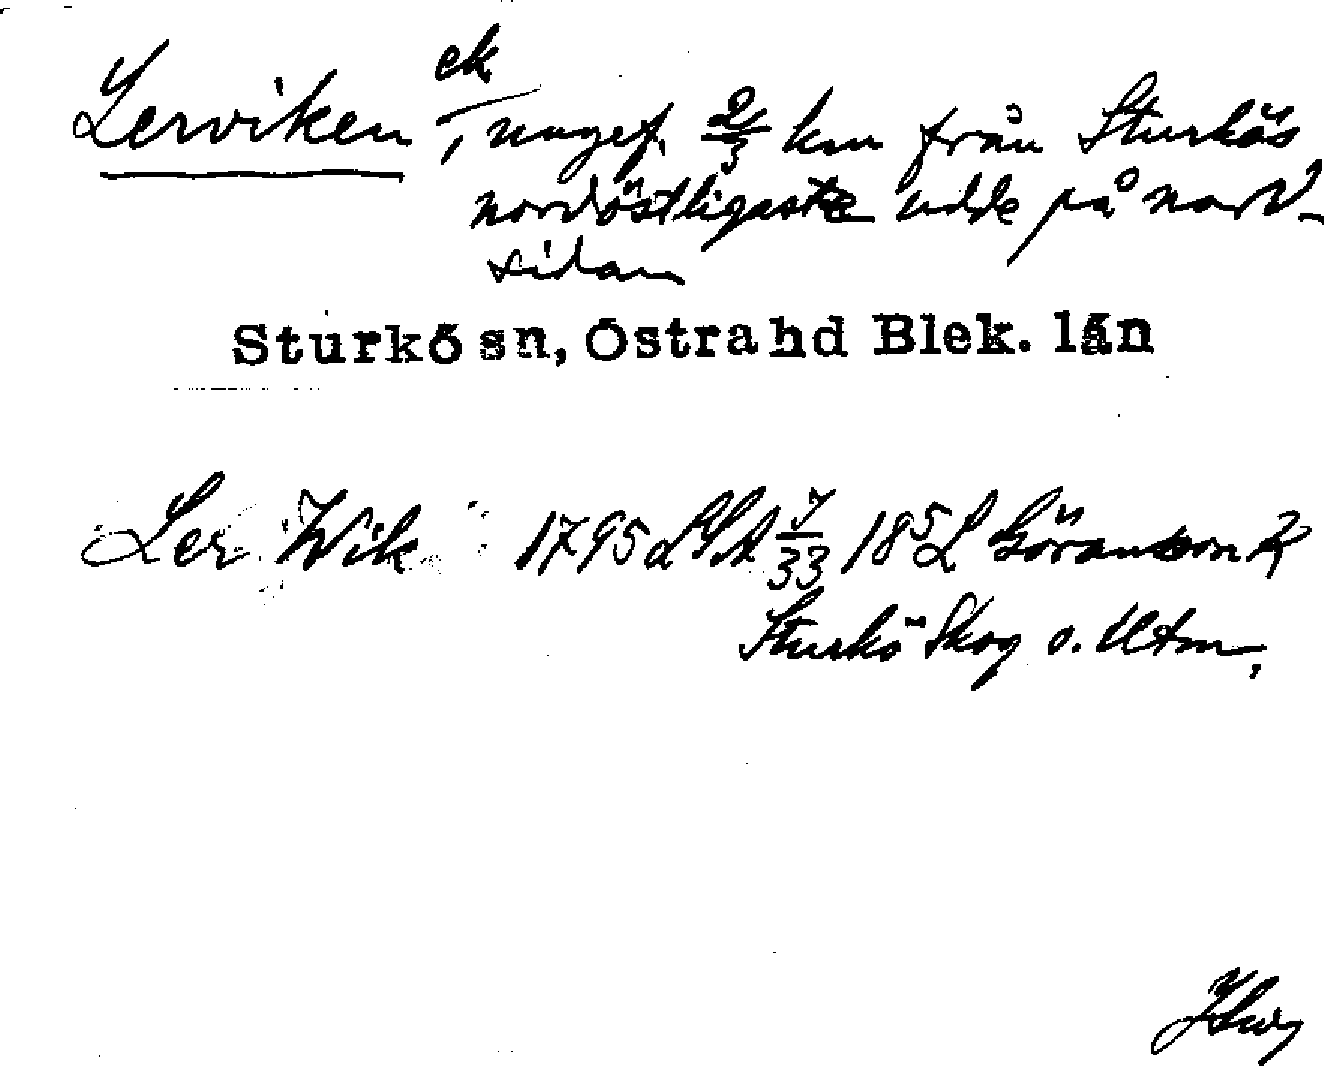 Lerviken ek, ungef. 2/3 km från Sturkös
nordöstligaste udde på nord-
sidan
Sturkö sn, Östra hd Blek. län
Ler Wik 1795 LSA 7/33 185 L Göransson R
Sturkö Skog o. Utm.